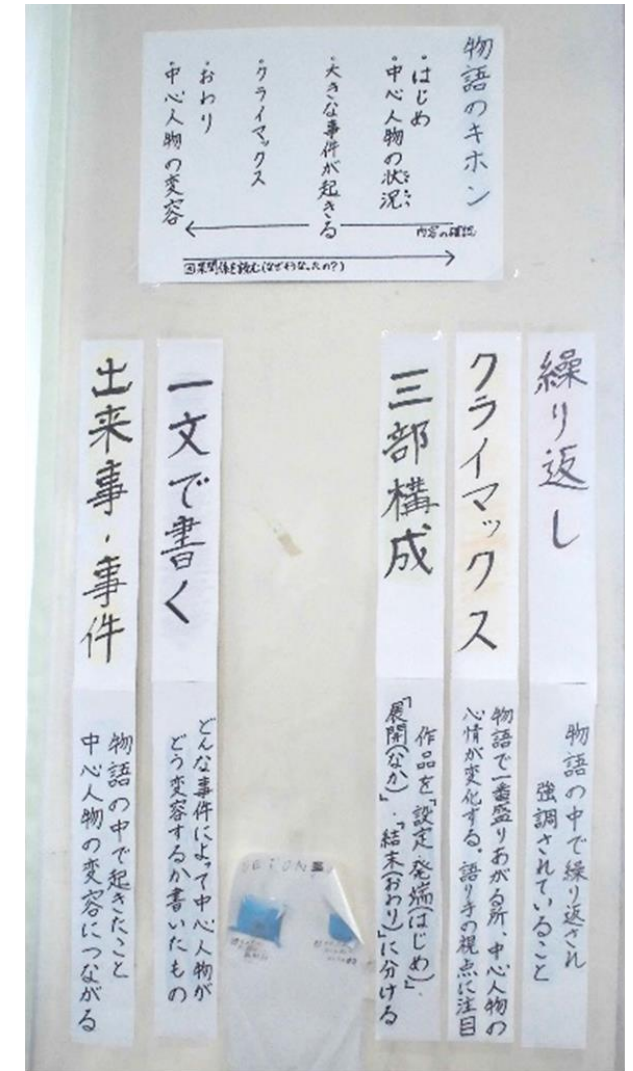 物語のキホン
・はじめ
・中心人物の状況
・大きな事件が起きる
・クライマックス
・おわり
・中心人物の変容
内容の確認
因果関係を読む(なぜそうなったの?)
繰り返し
物語の中で繰り返され
強調されていること
クライマックス
物語で一番盛りあがる所、中心人物の
心情が変化する。語り手の視点に注目
三部構成
作品を「設定・発端(はじめ)」、
「展開(なか)」・「結末(おわり)」に分ける
一文で書く
どんな事件によって中心人物が
どう変容するか書いたもの
出来事・事件
物語の中で起きたこと
中心人物の変容につながる